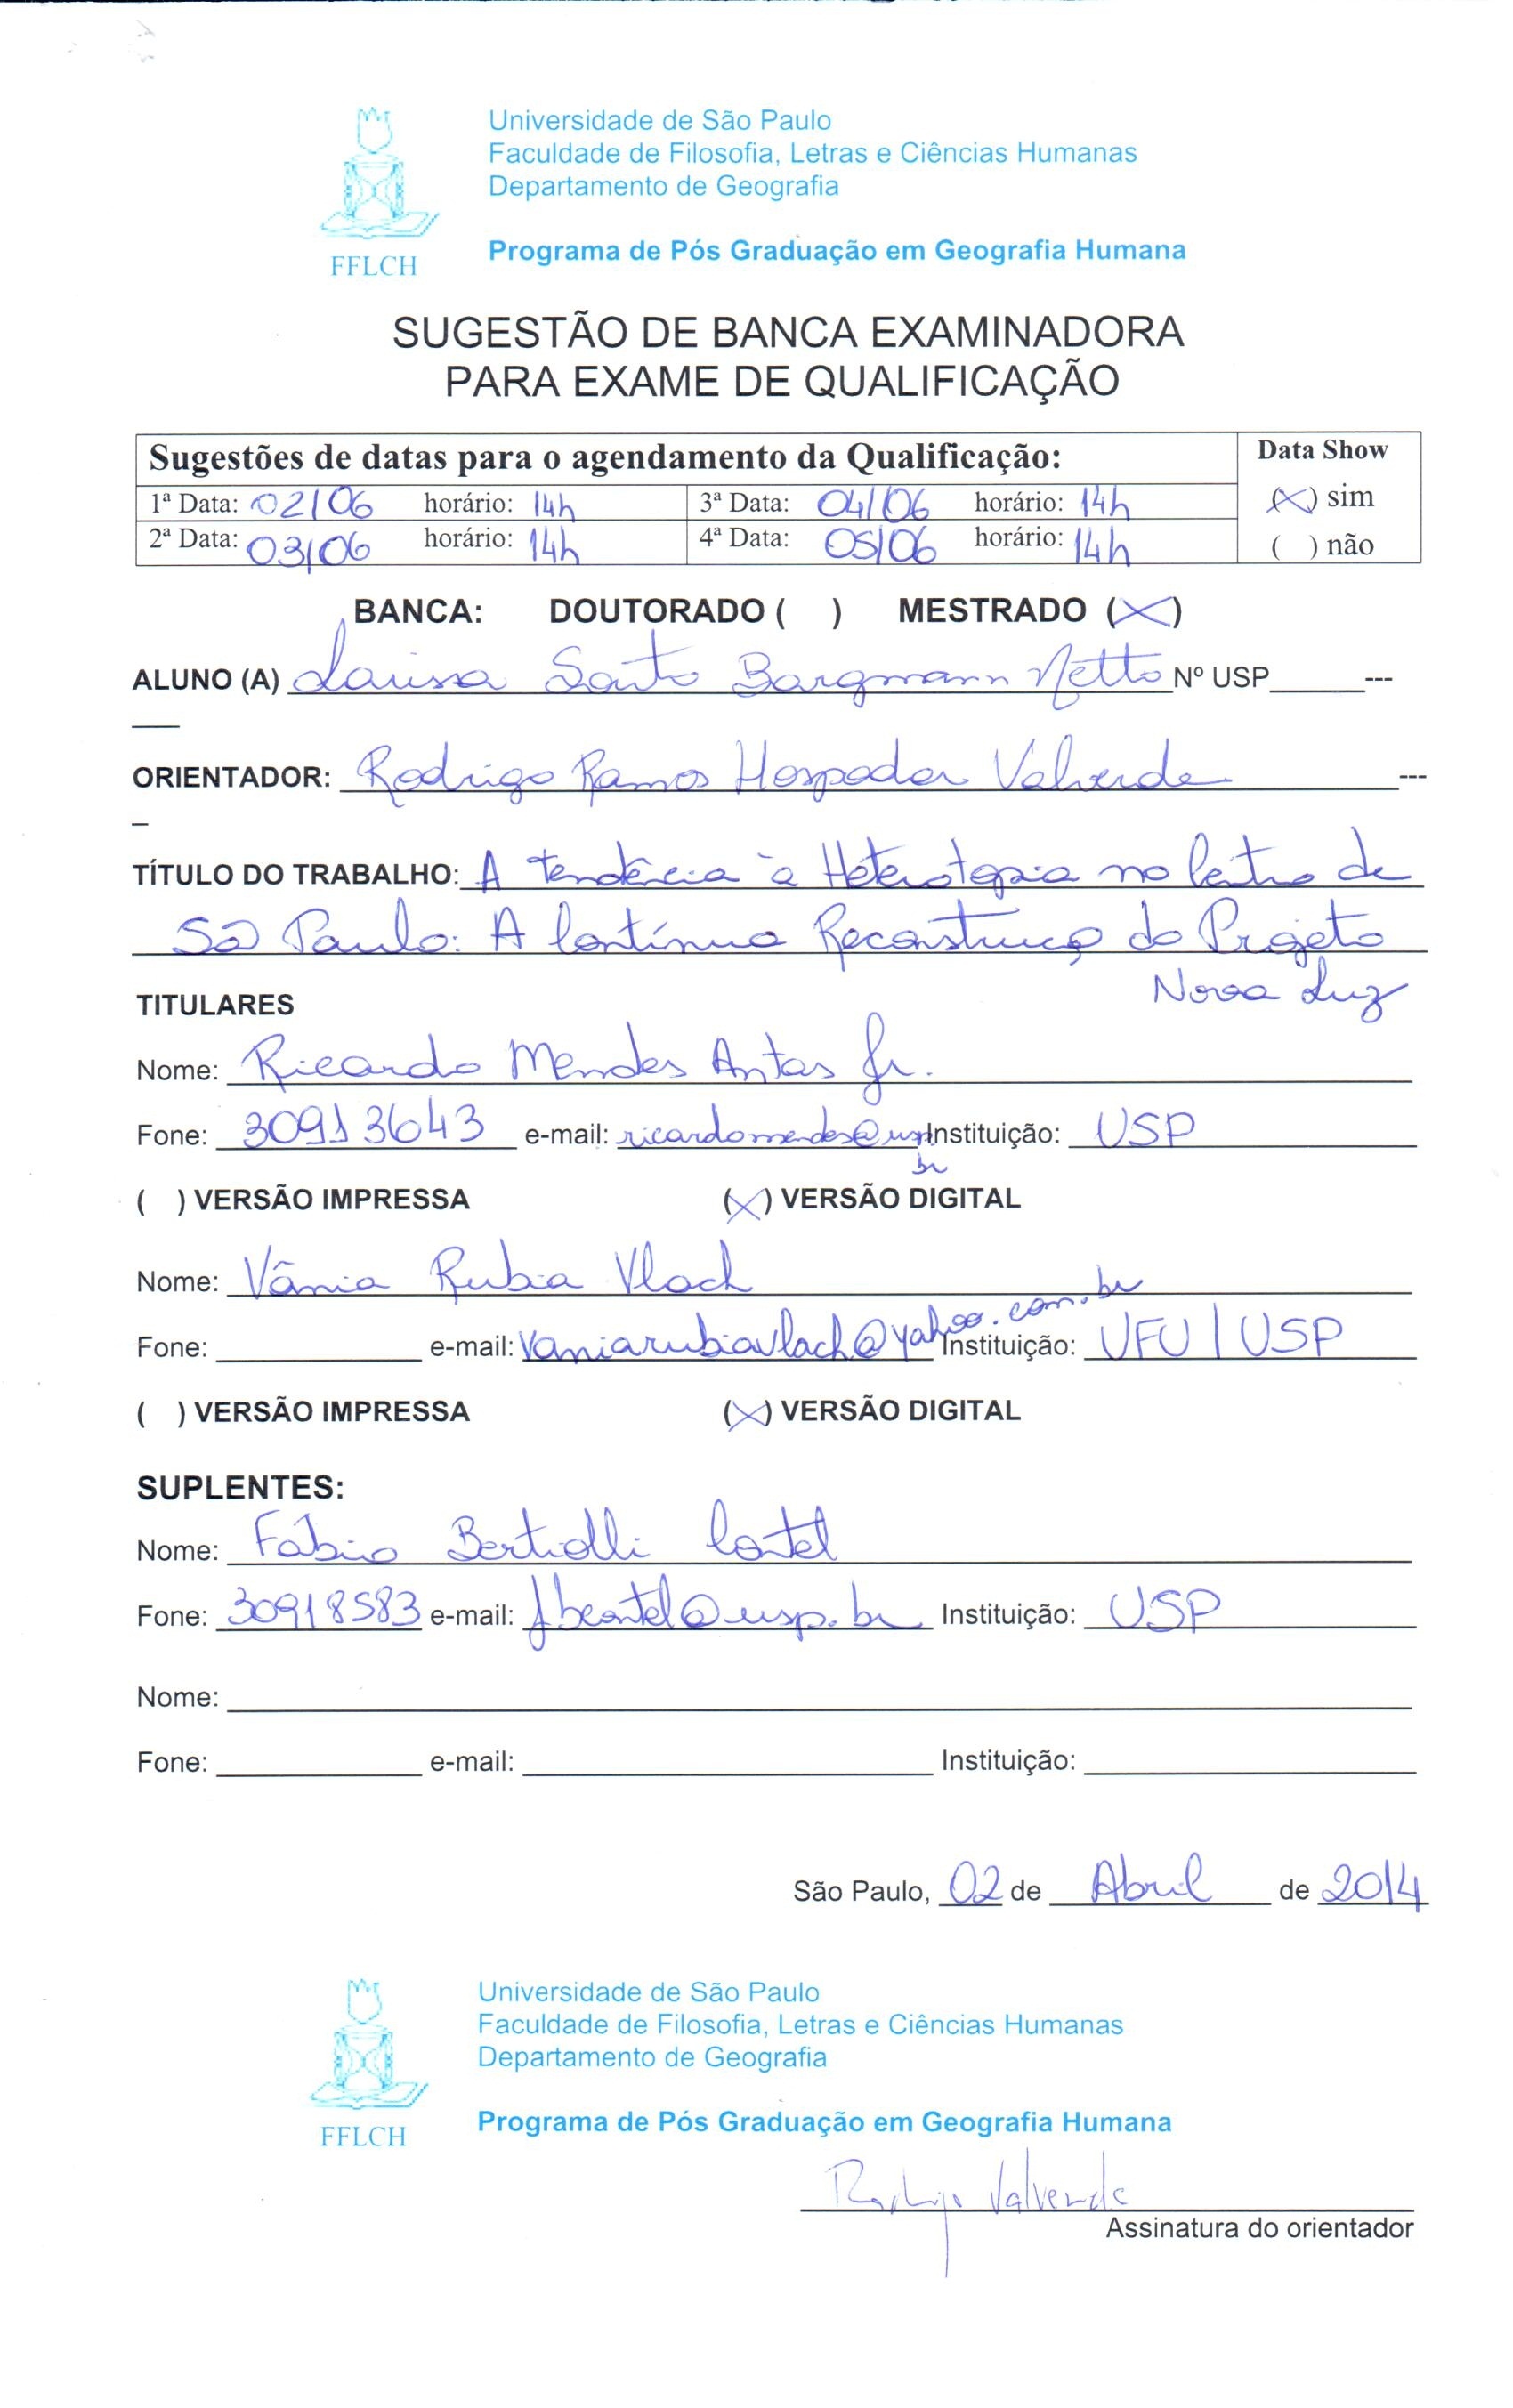 Universidade de São Paulo
Faculdade de Filosofia, Letras e Ciências Humanas
Departamento de Geografia
Programa de Pós Graduação em Geografia Humana
FFLCH
SUGESTÃO DE BANCA EXAMINADORA
PARA EXAME DE QUALIFICAÇÃO
Sugestões de datas para o agendamento da Qualificação: Data Show
1ª Data: 02/06 horário: 14h 3ª Data: 04/06 horário: 14h (X) sim
2ª Data: 03/06 horário: 14h 4ª Data: 05/06 horário: 14h ( ) não
BANCA: DOUTORADO ( ) MESTRADO (X)
ALUNO (A) Larissa Santo Bargmann Netto Nº USP______---
____
ORIENTADOR: Rodrigo Ramos Hospodar Valverde ---
_
TÍTULO DO TRABALHO: A tendência à Heterotopia no Centro de
São Paulo: A Contínua Reconstrução do Projeto
Nova Luz
TITULARES
Nome: Ricardo Mendes Antas Jr.
Fone: 30913643 e-mail: ricardomendes@usp Instituição: USP
br
( ) VERSÃO IMPRESSA (X) VERSÃO DIGITAL
Nome: Vânia Rubia Vlach
Fone: ____ e-mail: vaniarubiavlach@yahoo.com.br Instituição: UFU / USP
( ) VERSÃO IMPRESSA (X) VERSÃO DIGITAL
SUPLENTES:
Nome: Fábio Bertiolli Contel
Fone: 30918583 e-mail: fbcontel@usp.br Instituição: USP
Nome: ____
Fone: ____ e-mail: ____ Instituição: ____
São Paulo, 02 de Abril de 2014
Universidade de São Paulo
Faculdade de Filosofia, Letras e Ciências Humanas
Departamento de Geografia
Programa de Pós Graduação em Geografia Humana
FFLCH
Rodrigo Valverde
Assinatura do orientador